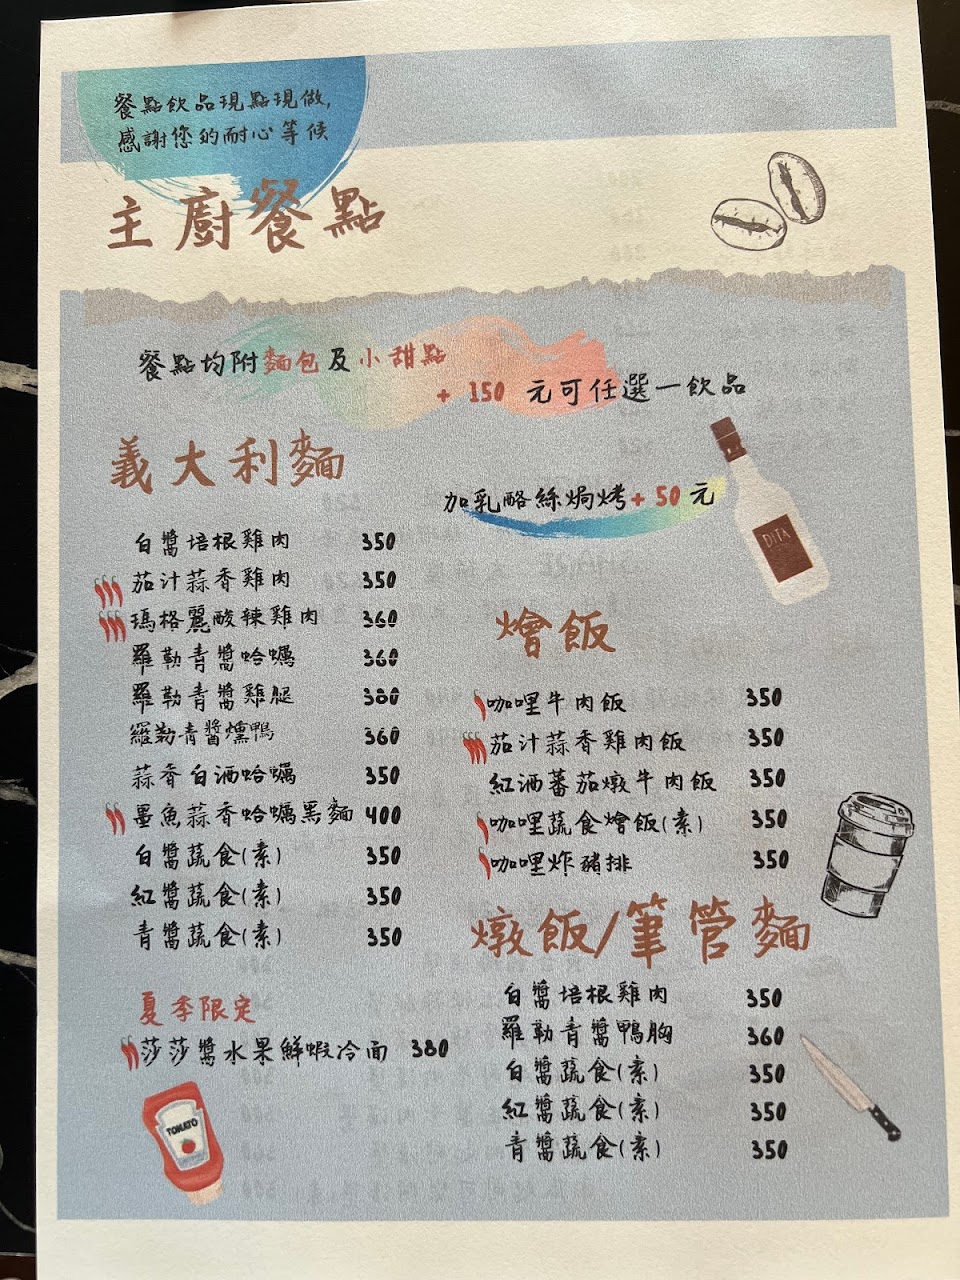 餐點飲品現點現做,
感謝您的耐心等候
主廚餐點
餐點均附麵包及小甜點
+ 150 元可任選一飲品
義大利麵
加乳酪絲焗烤+ 50 元
白醬培根雞肉 350
茄汁蒜香雞肉 350
瑪格麗酸辣雞肉 360
羅勒青醬蛤蠣 360
羅勒青醬雞腿 380
羅勒青醬燻鴨 360
蒜香白酒蛤蠣 350
墨魚蒜香蛤蠣黑麵 400
白醬蔬食(素) 350
紅醬蔬食(素) 350
青醬蔬食(素) 350
夏季限定
莎莎醬水果鮮蝦冷面 380
TOMATO
DITA
燴飯
咖哩牛肉飯 350
茄汁蒜香雞肉飯 350
紅酒蕃茄燉牛肉飯 350
咖哩蔬食燴飯(素) 350
咖哩炸豬排 350
燉飯/筆管麵
白醬培根雞肉 350
羅勒青醬鴨胸 360
白醬蔬食(素) 350
紅醬蔬食(素) 350
青醬蔬食(素) 350